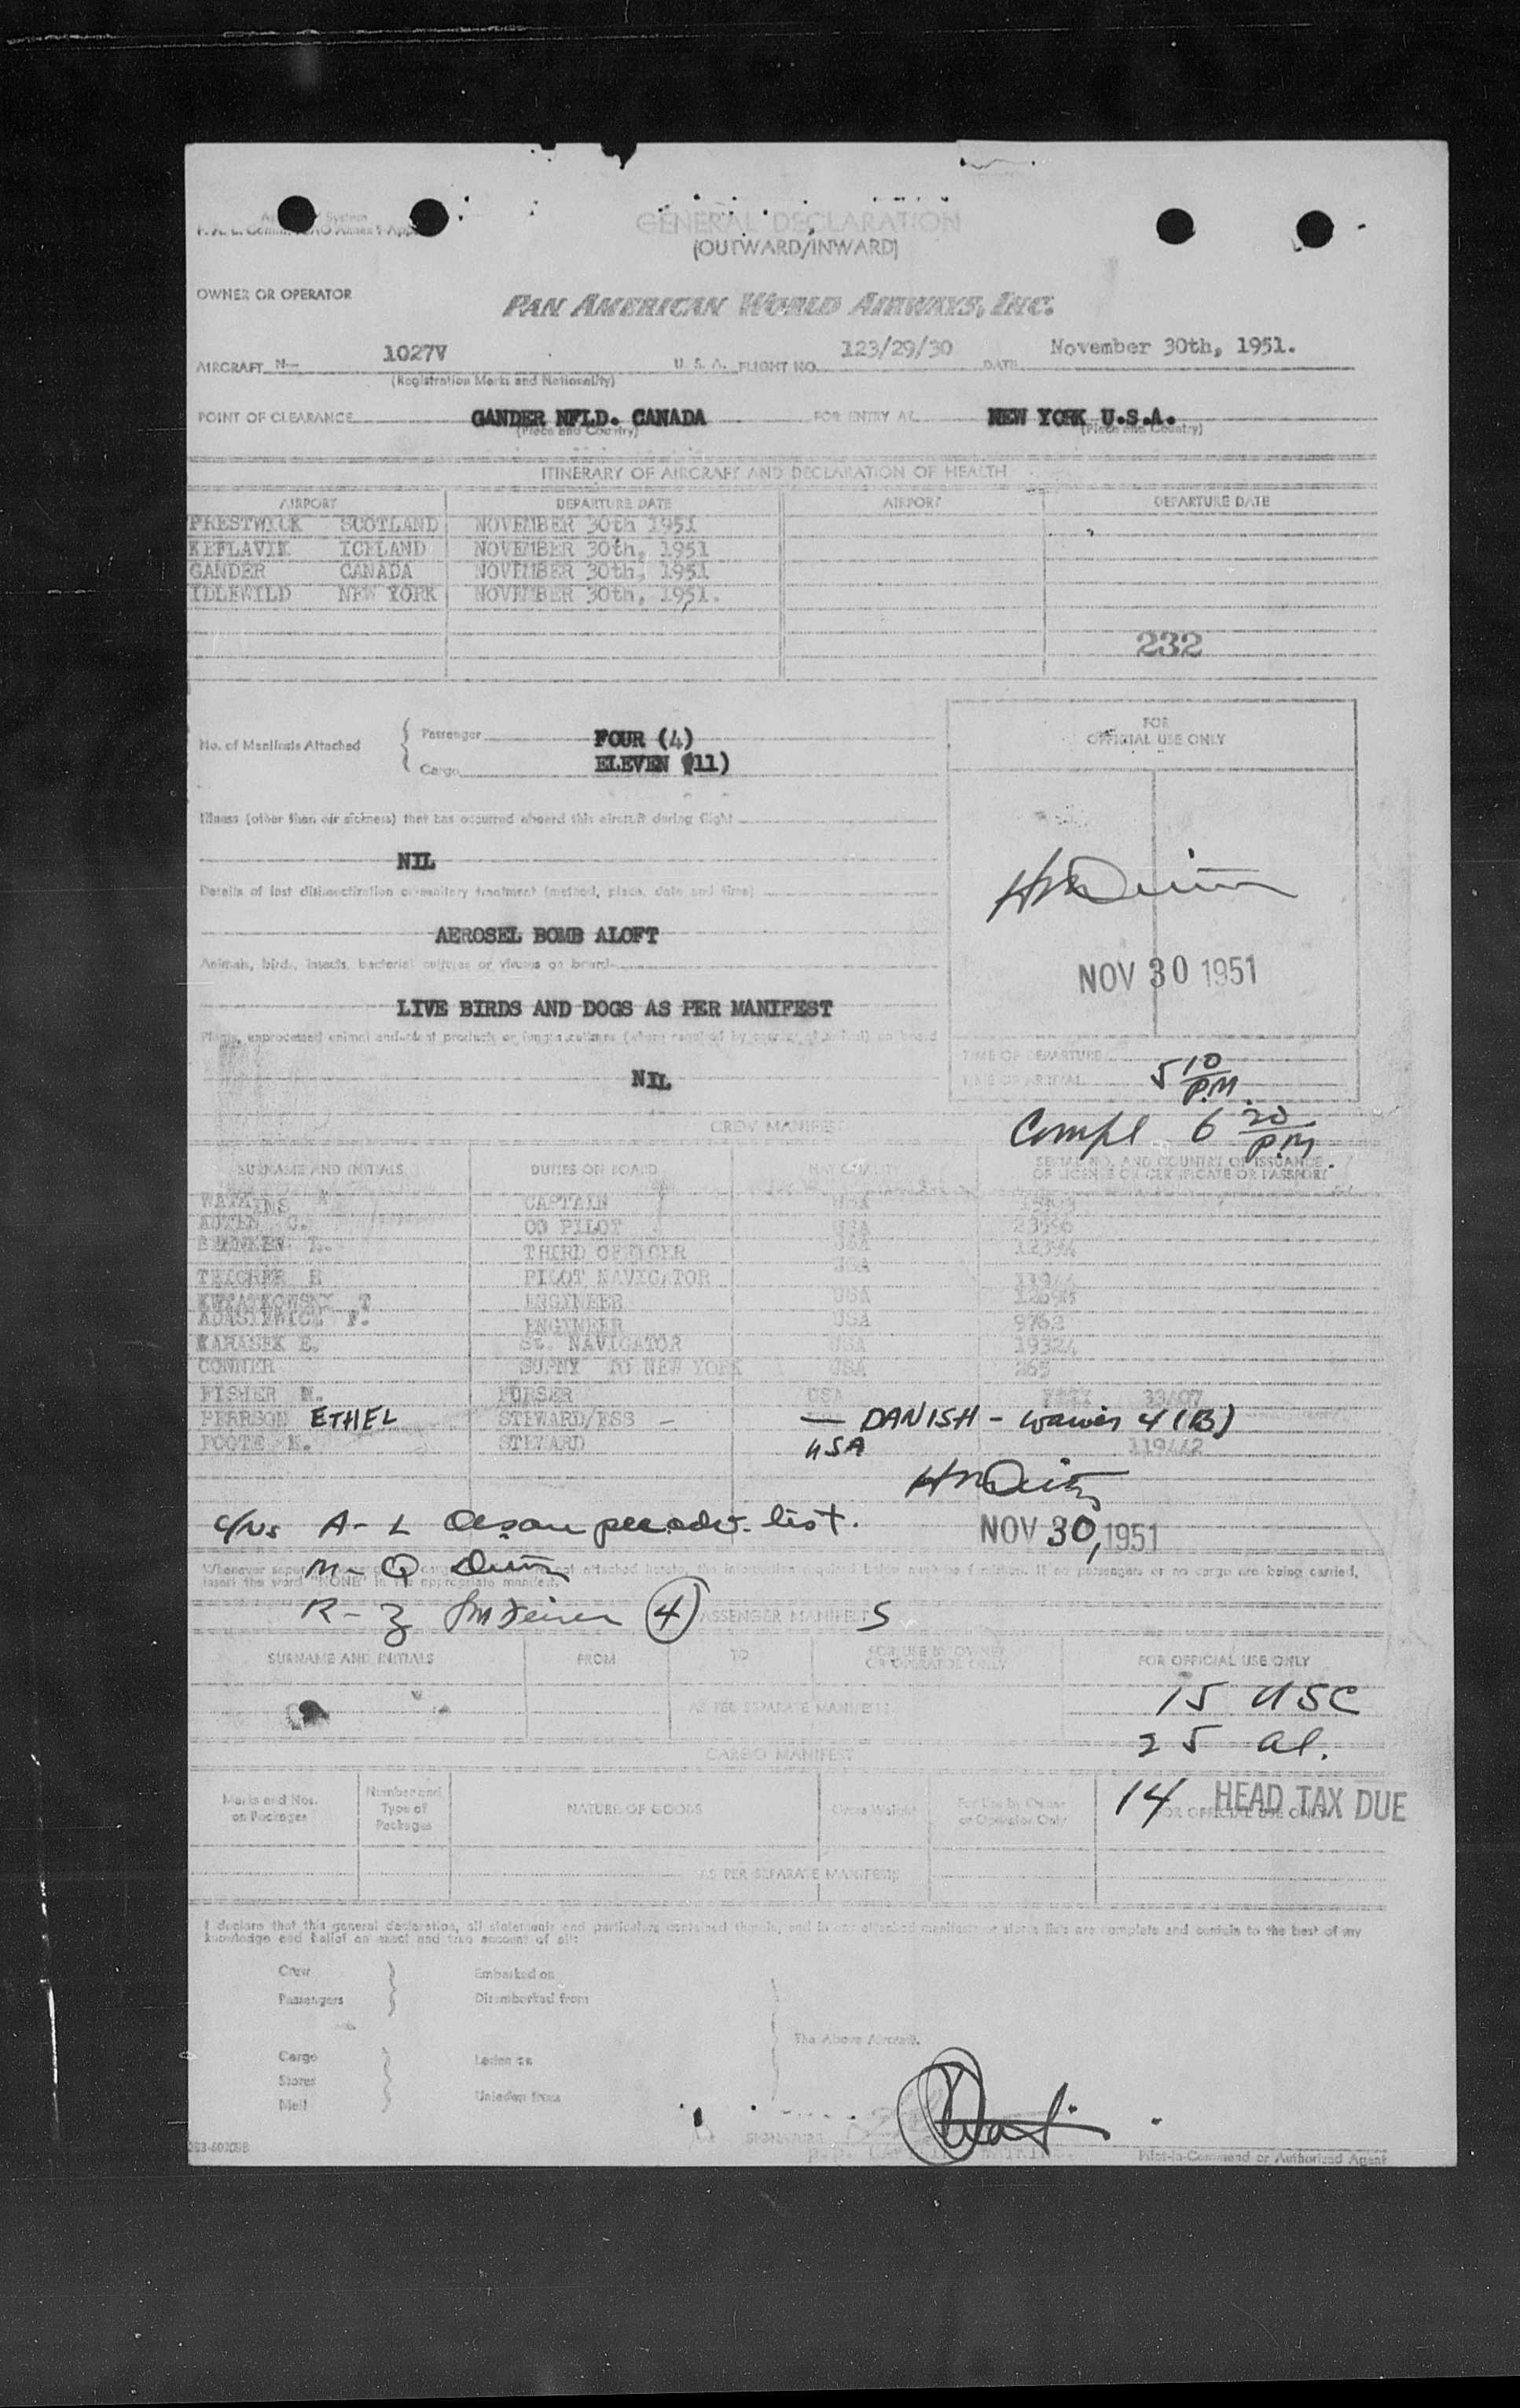 GENERAL DECLARATION
(OUTWARD/INWARD)
OWNER OR OPERATOR PAN AMERICAN WORLD AIRWAYS, INC.
AIRCRAFT N— 1027V U. S. A. FLIGHT NO. 123/29/30 DATE November 30th, 1951.
(Registration Marks and Nationality)
POINT OF CLEARANCE GANDER NFLD. CANADA FOR ENTRY AT NEW YORK U.S.A.
(Place and Country) (Place and Country)
ITINERARY OF AIRCRAFT AND DECLARATION OF HEALTH
AIRPORT DEPARTURE DATE AIRPORT DEPARTURE DATE
PRESTWICK SCOTLAND NOVEMBER 30th 1951
KEFLAVIK ICELAND NOVEMBER 30th, 1951
GANDER CANADA NOVEMBER 30th, 1951
IDLEWILD NEW YORK NOVEMBER 30th, 1951.
232
FOR
OFFICIAL USE ONLY
No. of Manifests Attached
Passenger FOUR (4)
Cargo ELEVEN (11)
Illness (other than air sickness) that has occurred aboard this aircraft during flight
NIL
Details of last disinsectization or sanitary treatment (method, place, date and time)
AEROSEL BOMB ALOFT
Animals, birds, insects, bacterial cultures or viruses on board
NOV 30 1951
LIVE BIRDS AND DOGS AS PER MANIFEST
NIL
TIME OF DEPARTURE
TIME OF ARRIVAL 5 10 P.M.
Compl 6 20 P.M.
CREW MANIFEST
SURNAME AND INITIALS DUTIES ON BOARD NATIONALITY SERIAL NO. AND COUNTRY OF ISSUANCE
OF LICENSE OR CERTIFICATE OR PASSPORT
CAPTAIN USA
AUTEN C. CO PILOT USA
THIRD OFFICER USA
TEACHER PILOT NAVIGATOR USA
KWIATKOWSKI T ENGINEER USA
F. ENGINEER USA 9762
KARASEK E. St. NAVIGATOR USA 19324
CONNER SUPNY TO NEW YORK USA 265
FISHER M. PURSER USA
PEARSON ETHEL STEWARD/ESS — — DANISH - waiver 4 (B)
FOOTE STEWARD USA 119442
NOV 30, 1951
A - L per adv. list.
M - Q
R - Z (4)
PASSENGER MANIFEST S
SURNAME AND INITIALS FROM TO FOR USE BY OWNER
OR OPERATOR ONLY FOR OFFICIAL USE ONLY
15 USC
AS PER SEPARATE MANIFESTS
25 al.
CARGO MANIFEST
14 HEAD TAX DUE
Marks and Nos.
on Packages
Number and
Type of
Packages
NATURE OF GOODS
Gross Weight
For Use by Owner
or Operator Only
FOR OFFICIAL USE ONLY
AS PER SEPARATE MANIFESTS
I declare that this general declaration, all statements and particulars contained therein, and in any attached manifests or stores lists are complete and contain to the best of my
knowledge and belief an exact and true account of all:
Crew Embarked on
Passengers Disembarked from
The Above Aircraft.
Cargo Laden on
Stores
Mail Unladen from
SIGNATURE
Pilot-in-Command or Authorized Agent